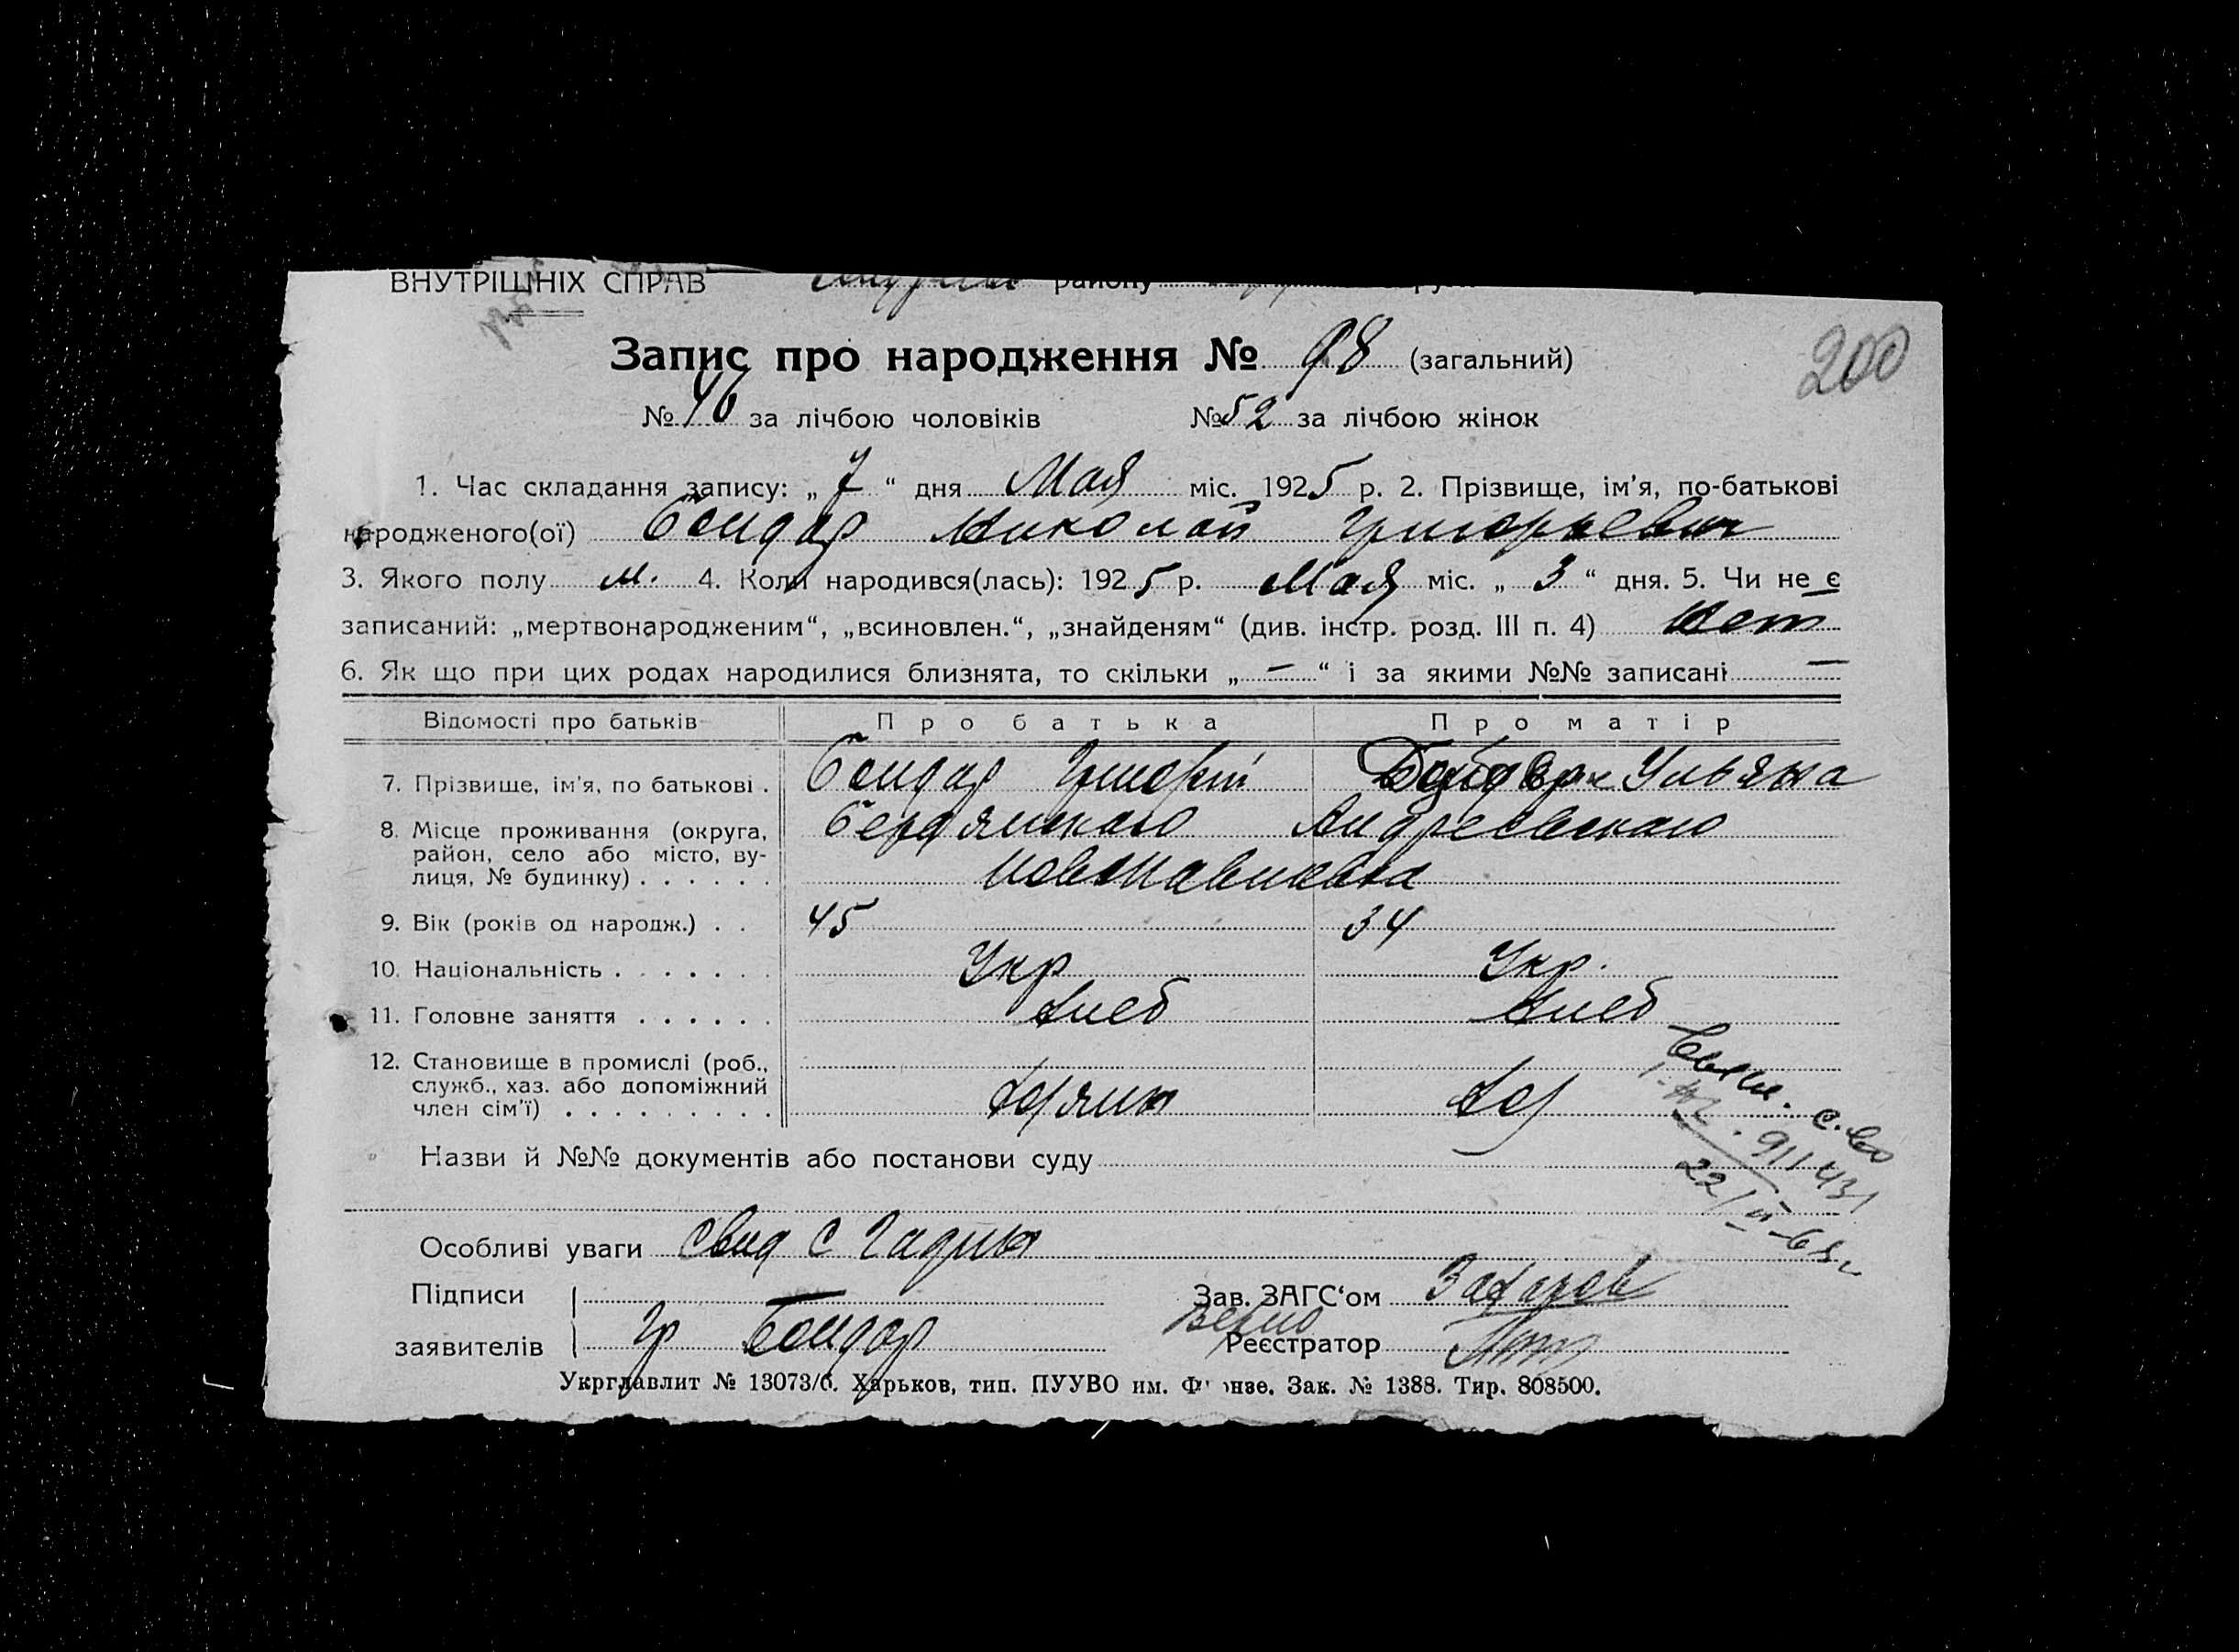 ВНУТРІШНІХ СПРАВ району
Запис про народження № 98 (загальний)
200
№ 46 за лічбою чоловіків № 52 за лічбою жінок
1. Час складання запису: „ 7 “ дня Мая міс. 1925 р. 2. Прізвище, ім'я, по-батькові
народженого(ої) Бондар Николай Григорьевич
3. Якого полу м. 4. Коли народився(лась): 1925 р. Мая міс. „ 3 “ дня. 5. Чи не є
записаний: „мертвонародженим“, „всиновлен.“, „знайденям“ (див. інстр. розд. III п. 4) Нет
6. Як що при цих родах народилися близнята, то скільки „ — “ і за якими №№ записані —
Відомості про батьків Про батька Про матір
7. Прізвище, ім'я, по батькові . Бондар Григорій Ульяна
8. Місце проживання (округа, Бердянского Андреевского
район, село або місто, ву-
лиця, № будинку) . . . . . . Новопавловка
9. Вік (років од народж.) . . 45 34
10. Національність . . . . . . . Укр Укр.
11. Головне заняття . . . . . . Хлеб Хлеб
12. Становище в промислі (роб.,
служб., хаз. або допоміжний
член сім'ї) . . . . . . . . . Хозяин Хоз
с.во
911431
Назви й №№ документів або постанови суду
22/II-68г
Особливі уваги Свид с
Підписи Зав. ЗАГС‘ом Захаров
Верно
заявителів Гр Бондар Реєстратор
Укрглавлит № 13073/6. Харьков, тип. ПУУВО им. Фрунзе. Зак. № 1388. Тир. 808500.